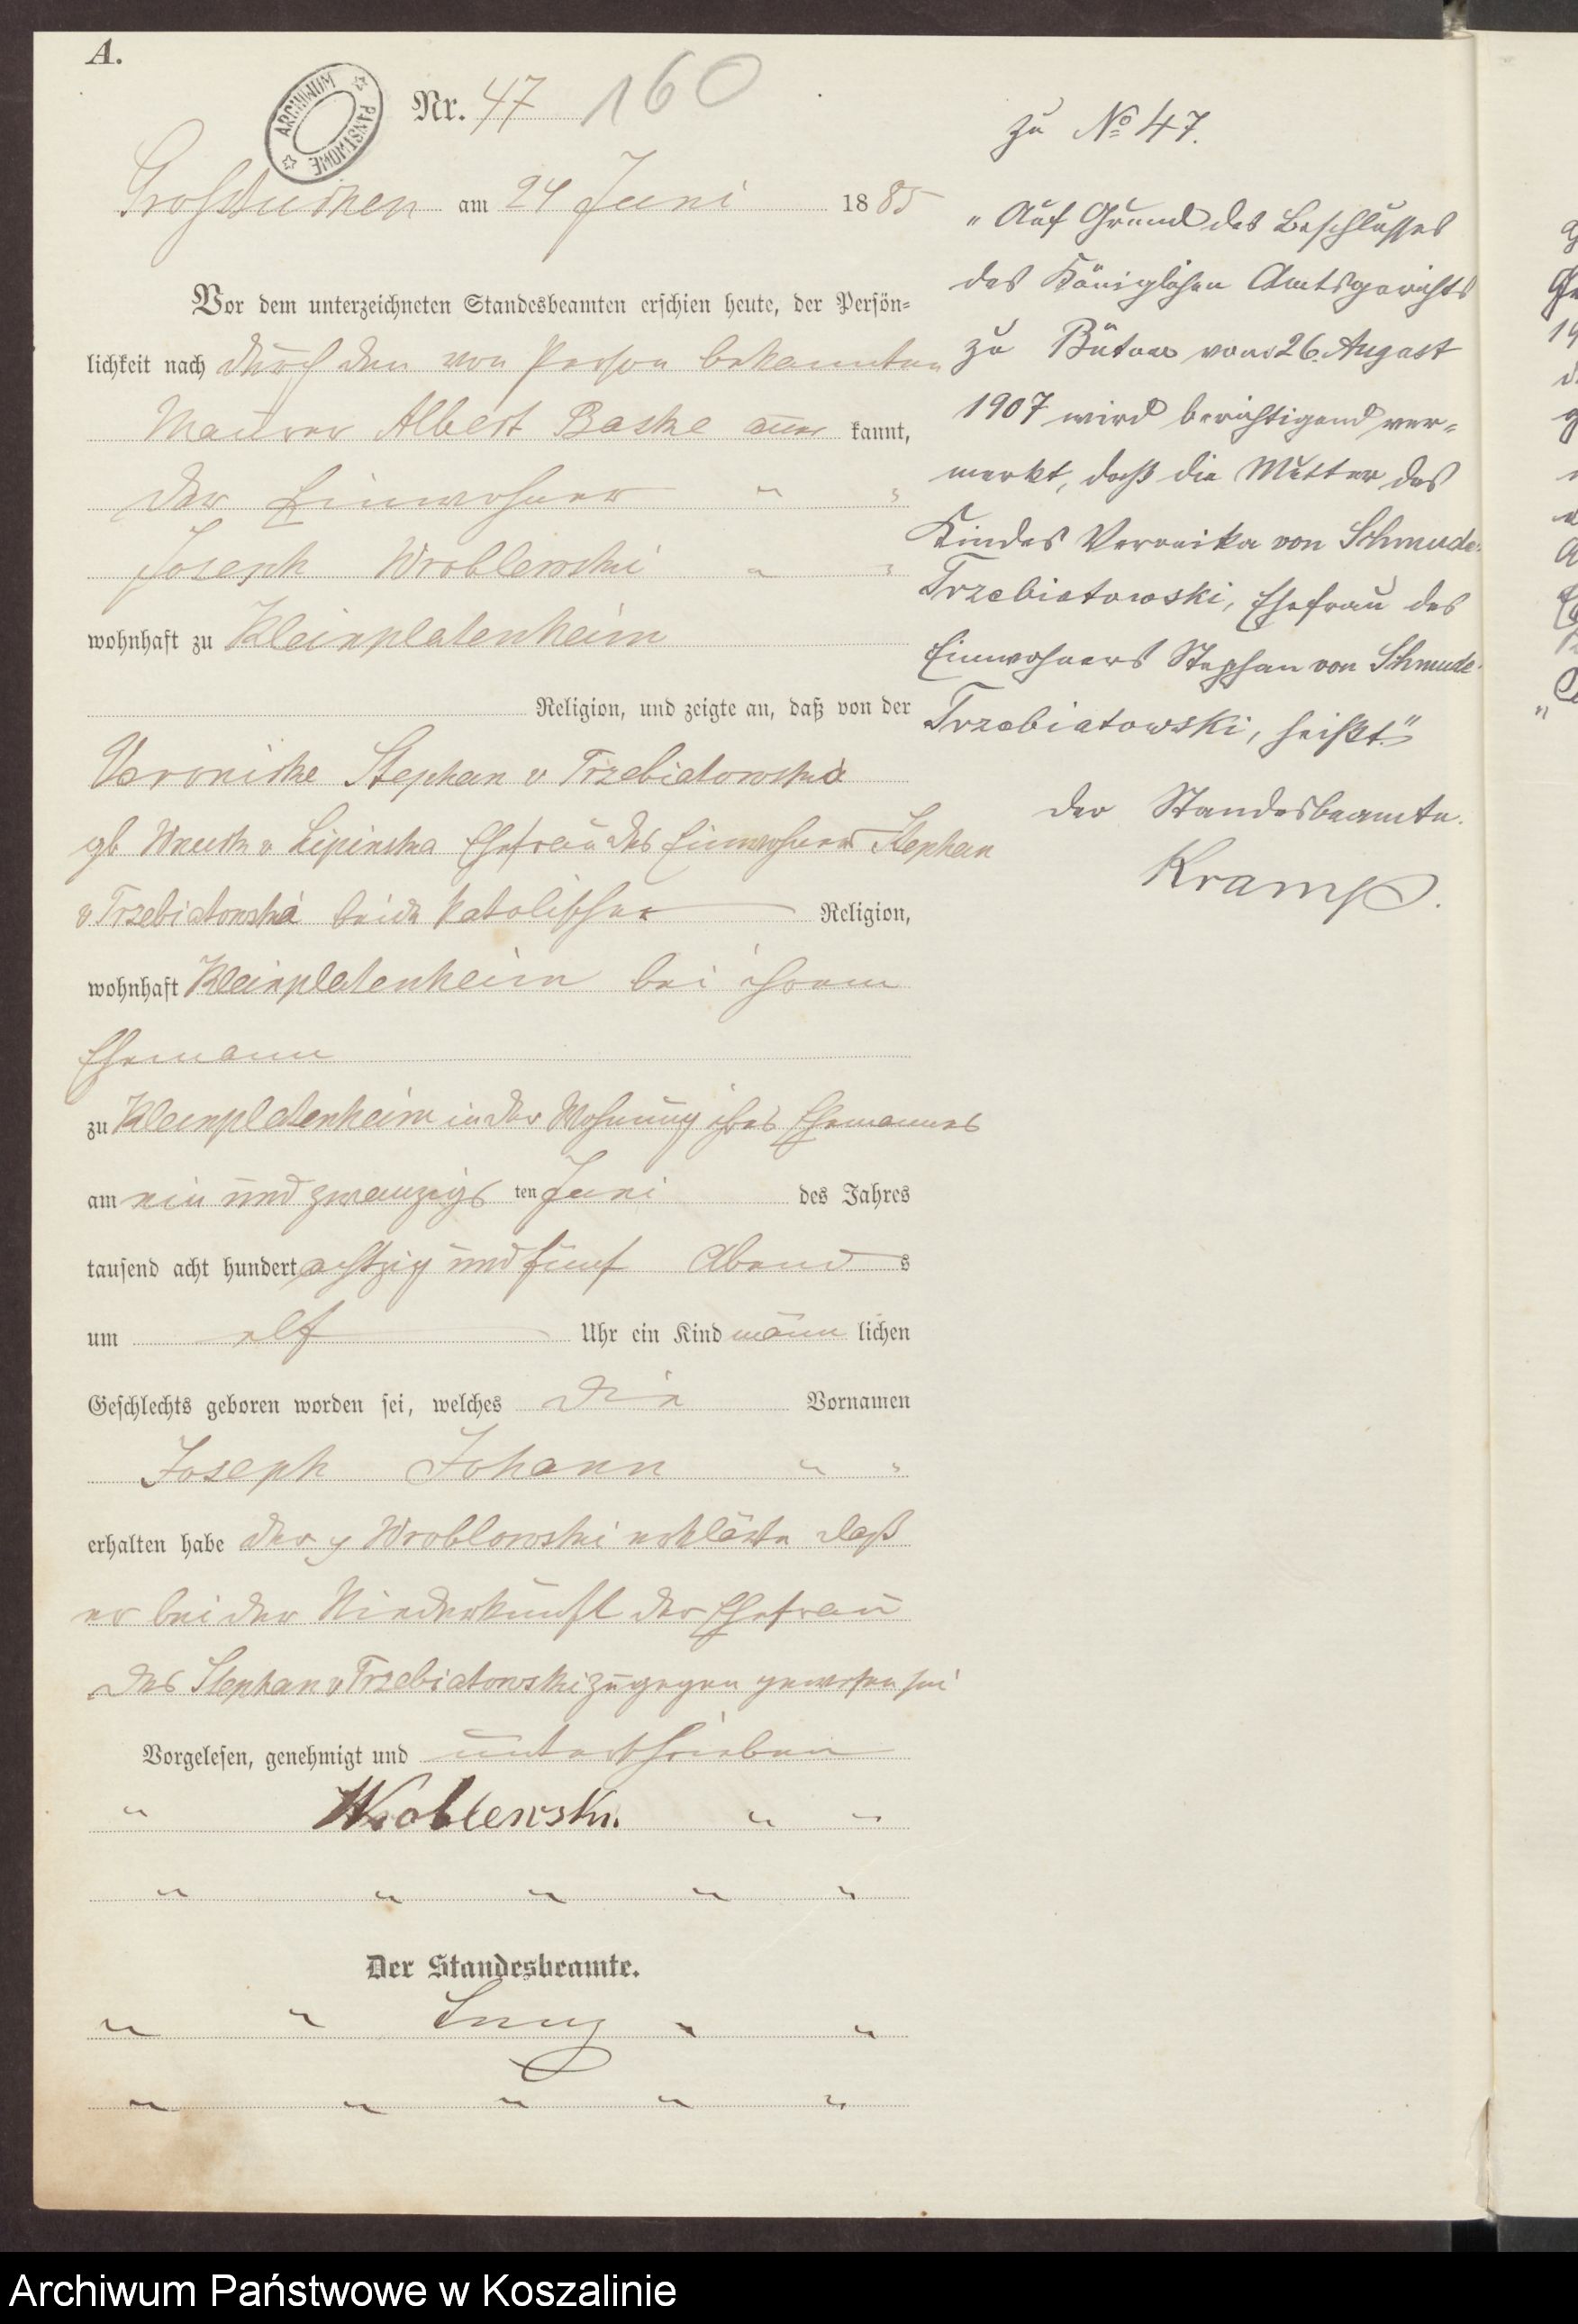 A.
ARCHIWUM PAŃSTWOWE
Nr. 47 160
Großtuchen am 24 Juni 1885
Vor dem unterzeichneten Standesbeamten erschien heute, der Persön-
lichkeit nach durch den von Person bekannten
Maurer Albert Baske aner kannt,
der Einwohner " "
Joseph Wroblewski " "
wohnhaft zu Kleinplatenheim
Religion, und zeigte an, daß von der
Veronicke Stephan v Trzebiatowska
gb Wnuck v Lipinska Ehefrau des Einwohner Stephan
v Trzebiatowski beide katolischer Religion,
wohnhaft Kleinplatenheim bei ihrem
Ehemann
zu Kleinplatenheim in der Wohnung ihres Ehemannes
am ein und zwanzigs ten Juni des Jahres
tausend acht hundert achtzig und fünf Abend s
um elf Uhr ein Kind männ lichen
Geschlechts geboren worden sei, welches die Vornamen
Joseph Johann " "
erhalten habe der Wroblowski erklärte daß
er bei der Niederkunft der Ehefrau
des Stephan v Trzebiatowski zugegen gewesen sei
Vorgelesen, genehmigt und unterschrieben
" Wroblewski. " "
" " " " "
Der Standesbeamte.
" " " "
" " " " "
zu No 47.
"Auf Grund des Beschlusses
des Königlichen Amtsgerichts
zu Bütow vom 26. August
1907 wird berichtigend ver-
merkt, daß die Mutter des
Kindes Veronika von Schmude-
Trzebiatowski, Ehefrau des
Einwohners Stephan von Schmude-
Trzebiatowski, heißt."
Der Standesbeamte.
Kramp.
Archiwum Państwowe w Koszalinie